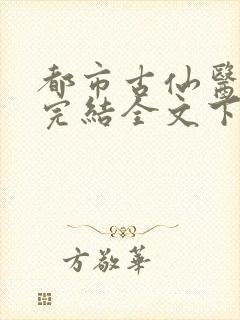 都市古仙醫
完結全文下
方敬華